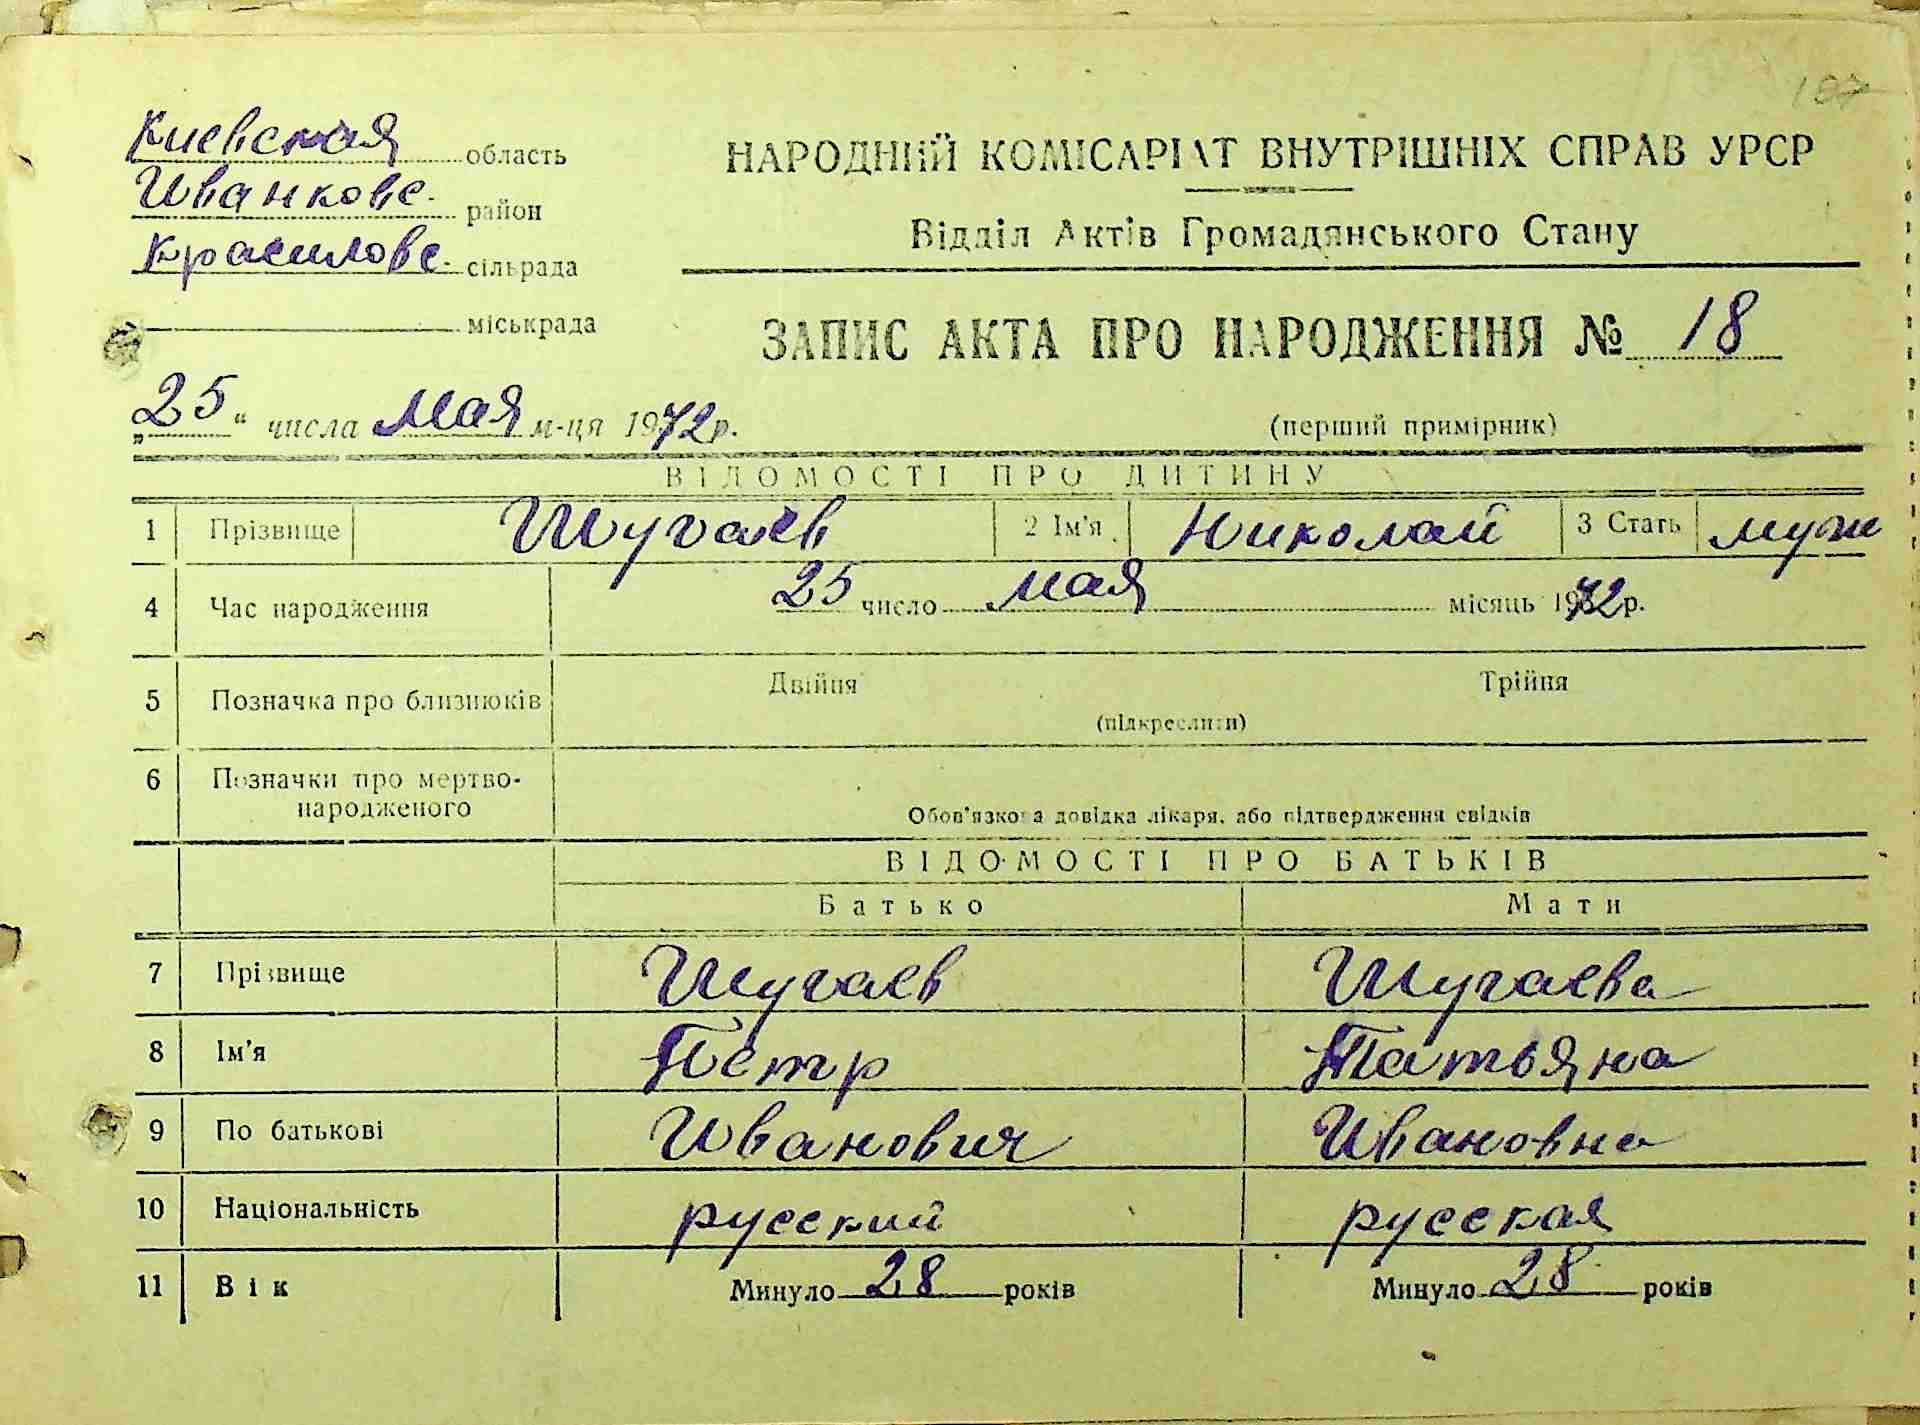 Киевская область
Иванковс. район
Красиловс. сільрада
міськрада
НАРОДНИЙ КОМІСАРІАТ ВНУТРІШНІХ СПРАВ УРСР
Відділ Актів Громадянського Стану
ЗАПИС АКТА ПРО НАРОДЖЕННЯ № 18
„25“ числа Мая м-ця 1972р.
(перший примірник)
ВІДОМОСТІ ПРО ДИТИНУ
1 Прізвище Шугаев 2 Ім'я Николай 3 Стать муж
4 Час народження 25 число мая місяць 1972р.
5 Позначка про близнюків Двійня Трійня
(підкреслити)
6 Позначки про мертво-
народженого
Обов'язкова довідка лікаря, або підтвердження свідків
ВІДОМОСТІ ПРО БАТЬКІВ
Батько Мати
7 Прізвище Шугаев Шугаева
8 Ім'я Петр Татьяна
9 По батькові Иванович Ивановна
10 Національність русский русская
11 Вік Минуло 28 років Минуло 28 років